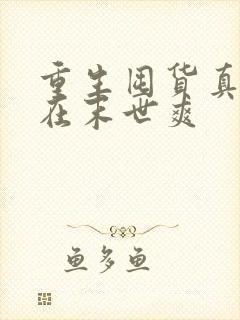 重生囤货真
在末世爽
鱼多鱼